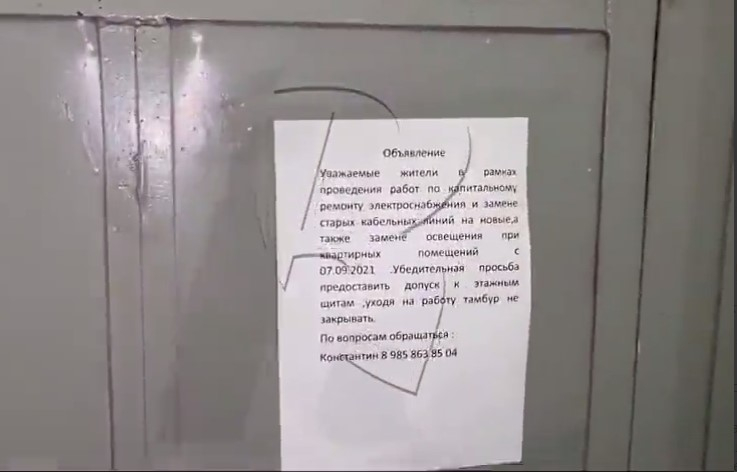 Объявление
Уважаемые жители в рамках
проведения работ по капитальному
ремонту электроснабжения и замене
старых кабельных линий на новые,а
также замене освещения при
квартирных помещений с
07.09.2021 .Убедительная просьба
предоставить допуск к этажным
щитам ,уходя на работу тамбур не
закрывать.
По вопросам обращаться :
Константин 8 985 863 85 04